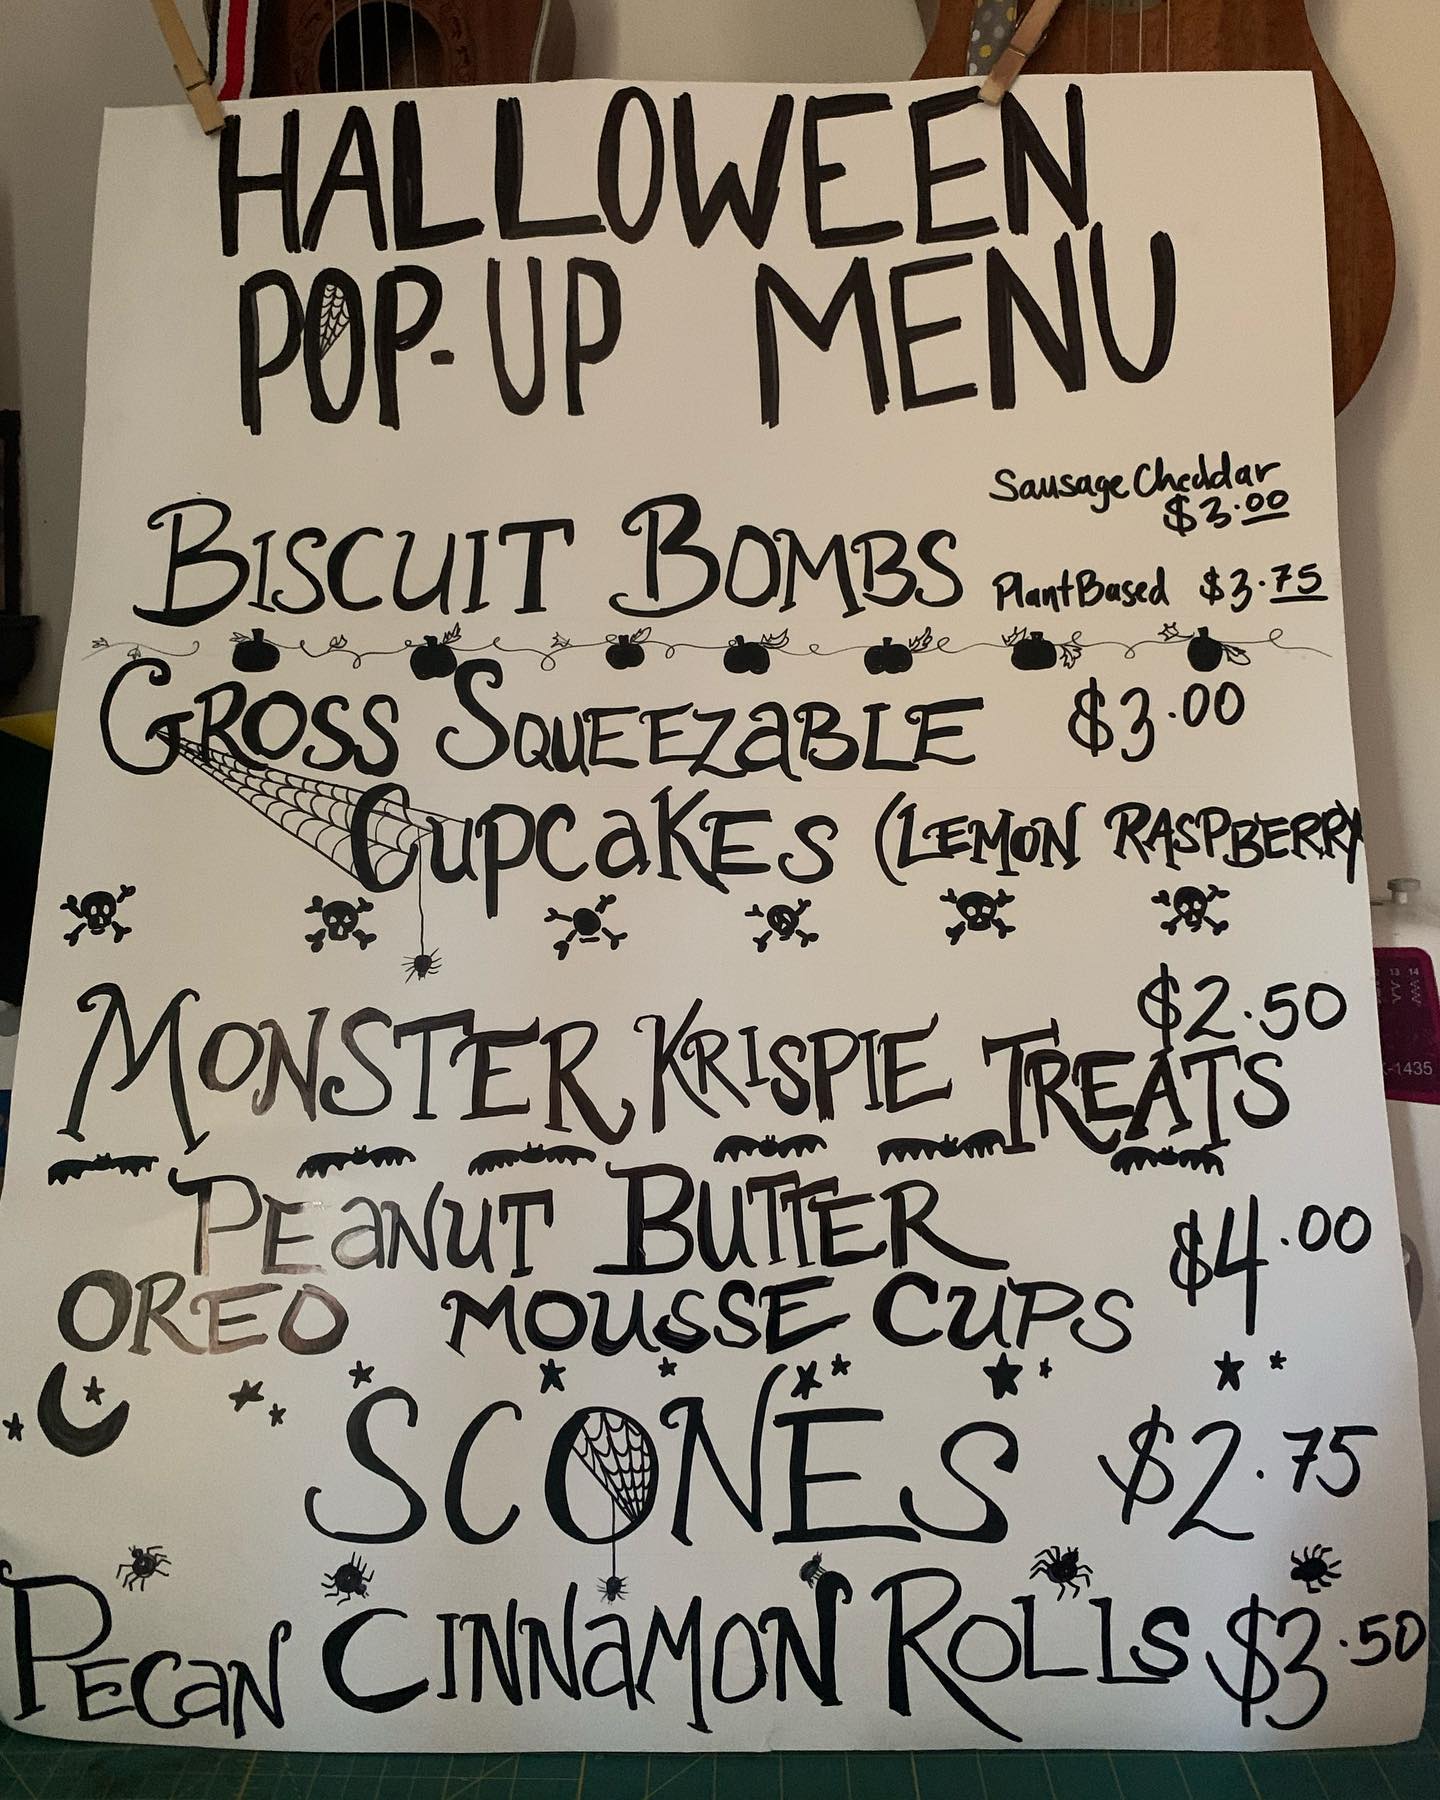 HALLOWEEN
POP-UP MENU
Sausage Cheddar
$3.00
BISCUIT BOMBS
PlantBased $3.75
GROSS SQUEEZaBLE $3.00
CupcaKES (LEMON RASPBERRY
$2.50
MONSTER KRISPIE TREATS
PEaNUT BUTTER
$4.00
OREO MOUSSE CUPS
SCONES $2.75
PECaN CINNaMON ROLLS $3.50
13 14
-1435